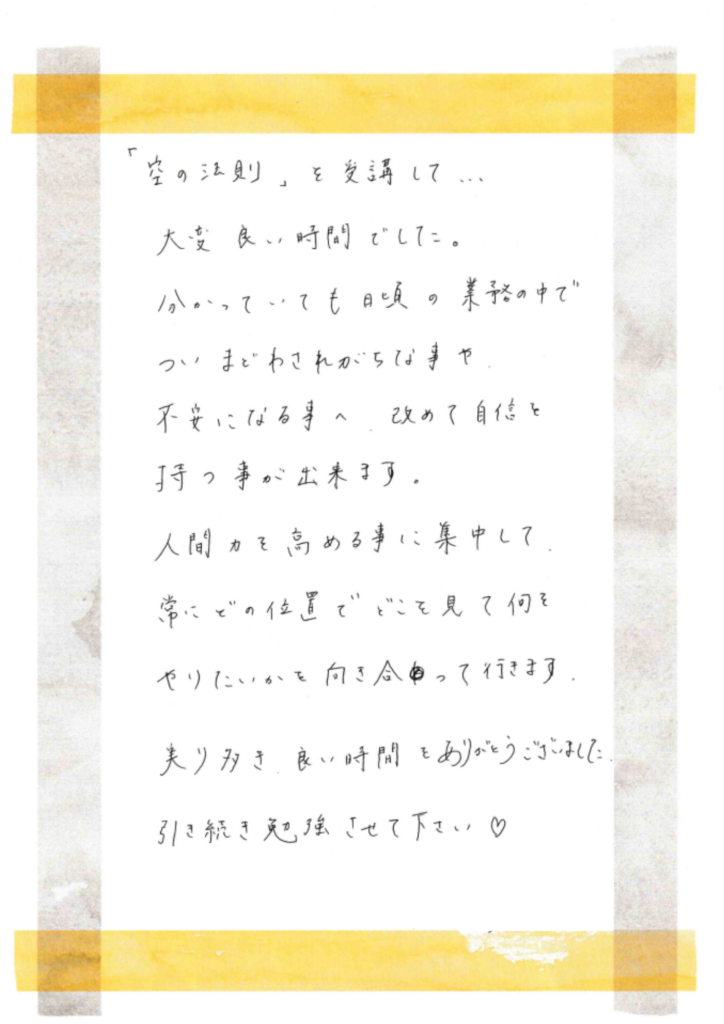 「空の法則」を受講して...
大変良い時間でした。
分かっていても日頃の業務の中で
ついまどわされがちな事や、
不安になる事へ、改めて自信を
持つ事が出来ます。
人間力を高める事に集中して、
常にどの位置でどこを見て何を
やりたいかを向き合って行きます。
実り多き、良い時間をありがとうございました。
引き続き勉強させて下さい♡